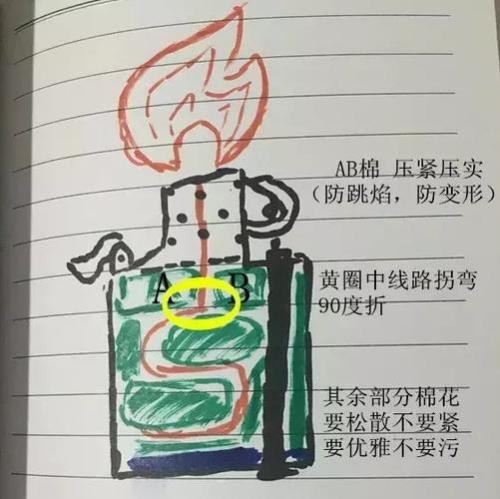 AB棉 压紧压实
（防跳焰，防变形）
A B
黄圈中线路拐弯
90度折
其余部分棉花
要松散不要紧
要优雅不要污